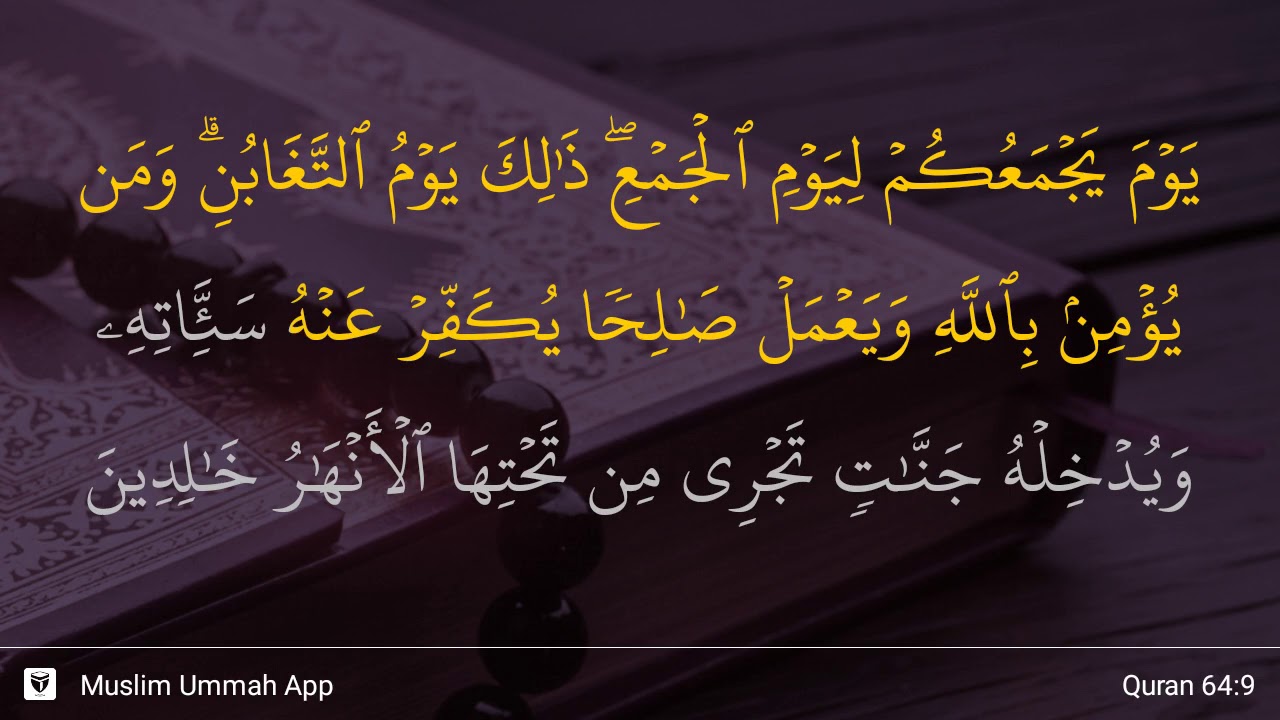 يَوْمَ يَجْمَعُكُمْ لِيَوْمِ ٱلْجَمْعِ ۖ ذَٰلِكَ يَوْمُ ٱلتَّغَابُنِ ۗ وَمَن
يُؤْمِنۢ بِٱللَّهِ وَيَعْمَلْ صَـٰلِحًا يُكَفِّرْ عَنْهُ سَيِّـَٔاتِهِۦ
وَيُدْخِلْهُ جَنَّـٰتٍ تَجْرِى مِن تَحْتِهَا ٱلْأَنْهَـٰرُ خَـٰلِدِينَ
Muslim Ummah App
Quran 64:9